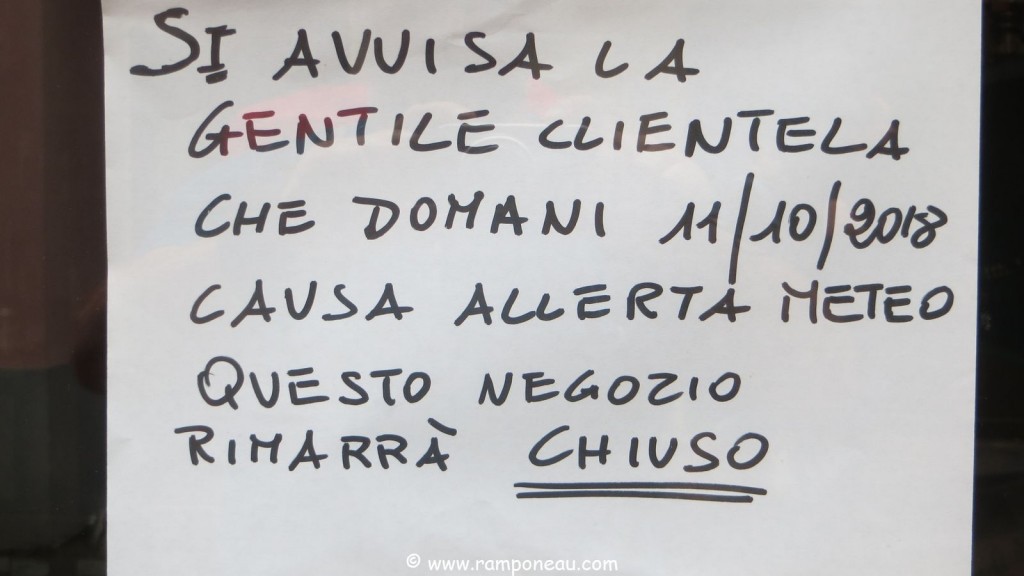 SI AVVISA LA
GENTILE CLIENTELA
CHE DOMANI 11/10/2018
CAUSA ALLERTA METEO
QUESTO NEGOZIO
RIMARRÀ CHIUSO
© www.ramponeau.com